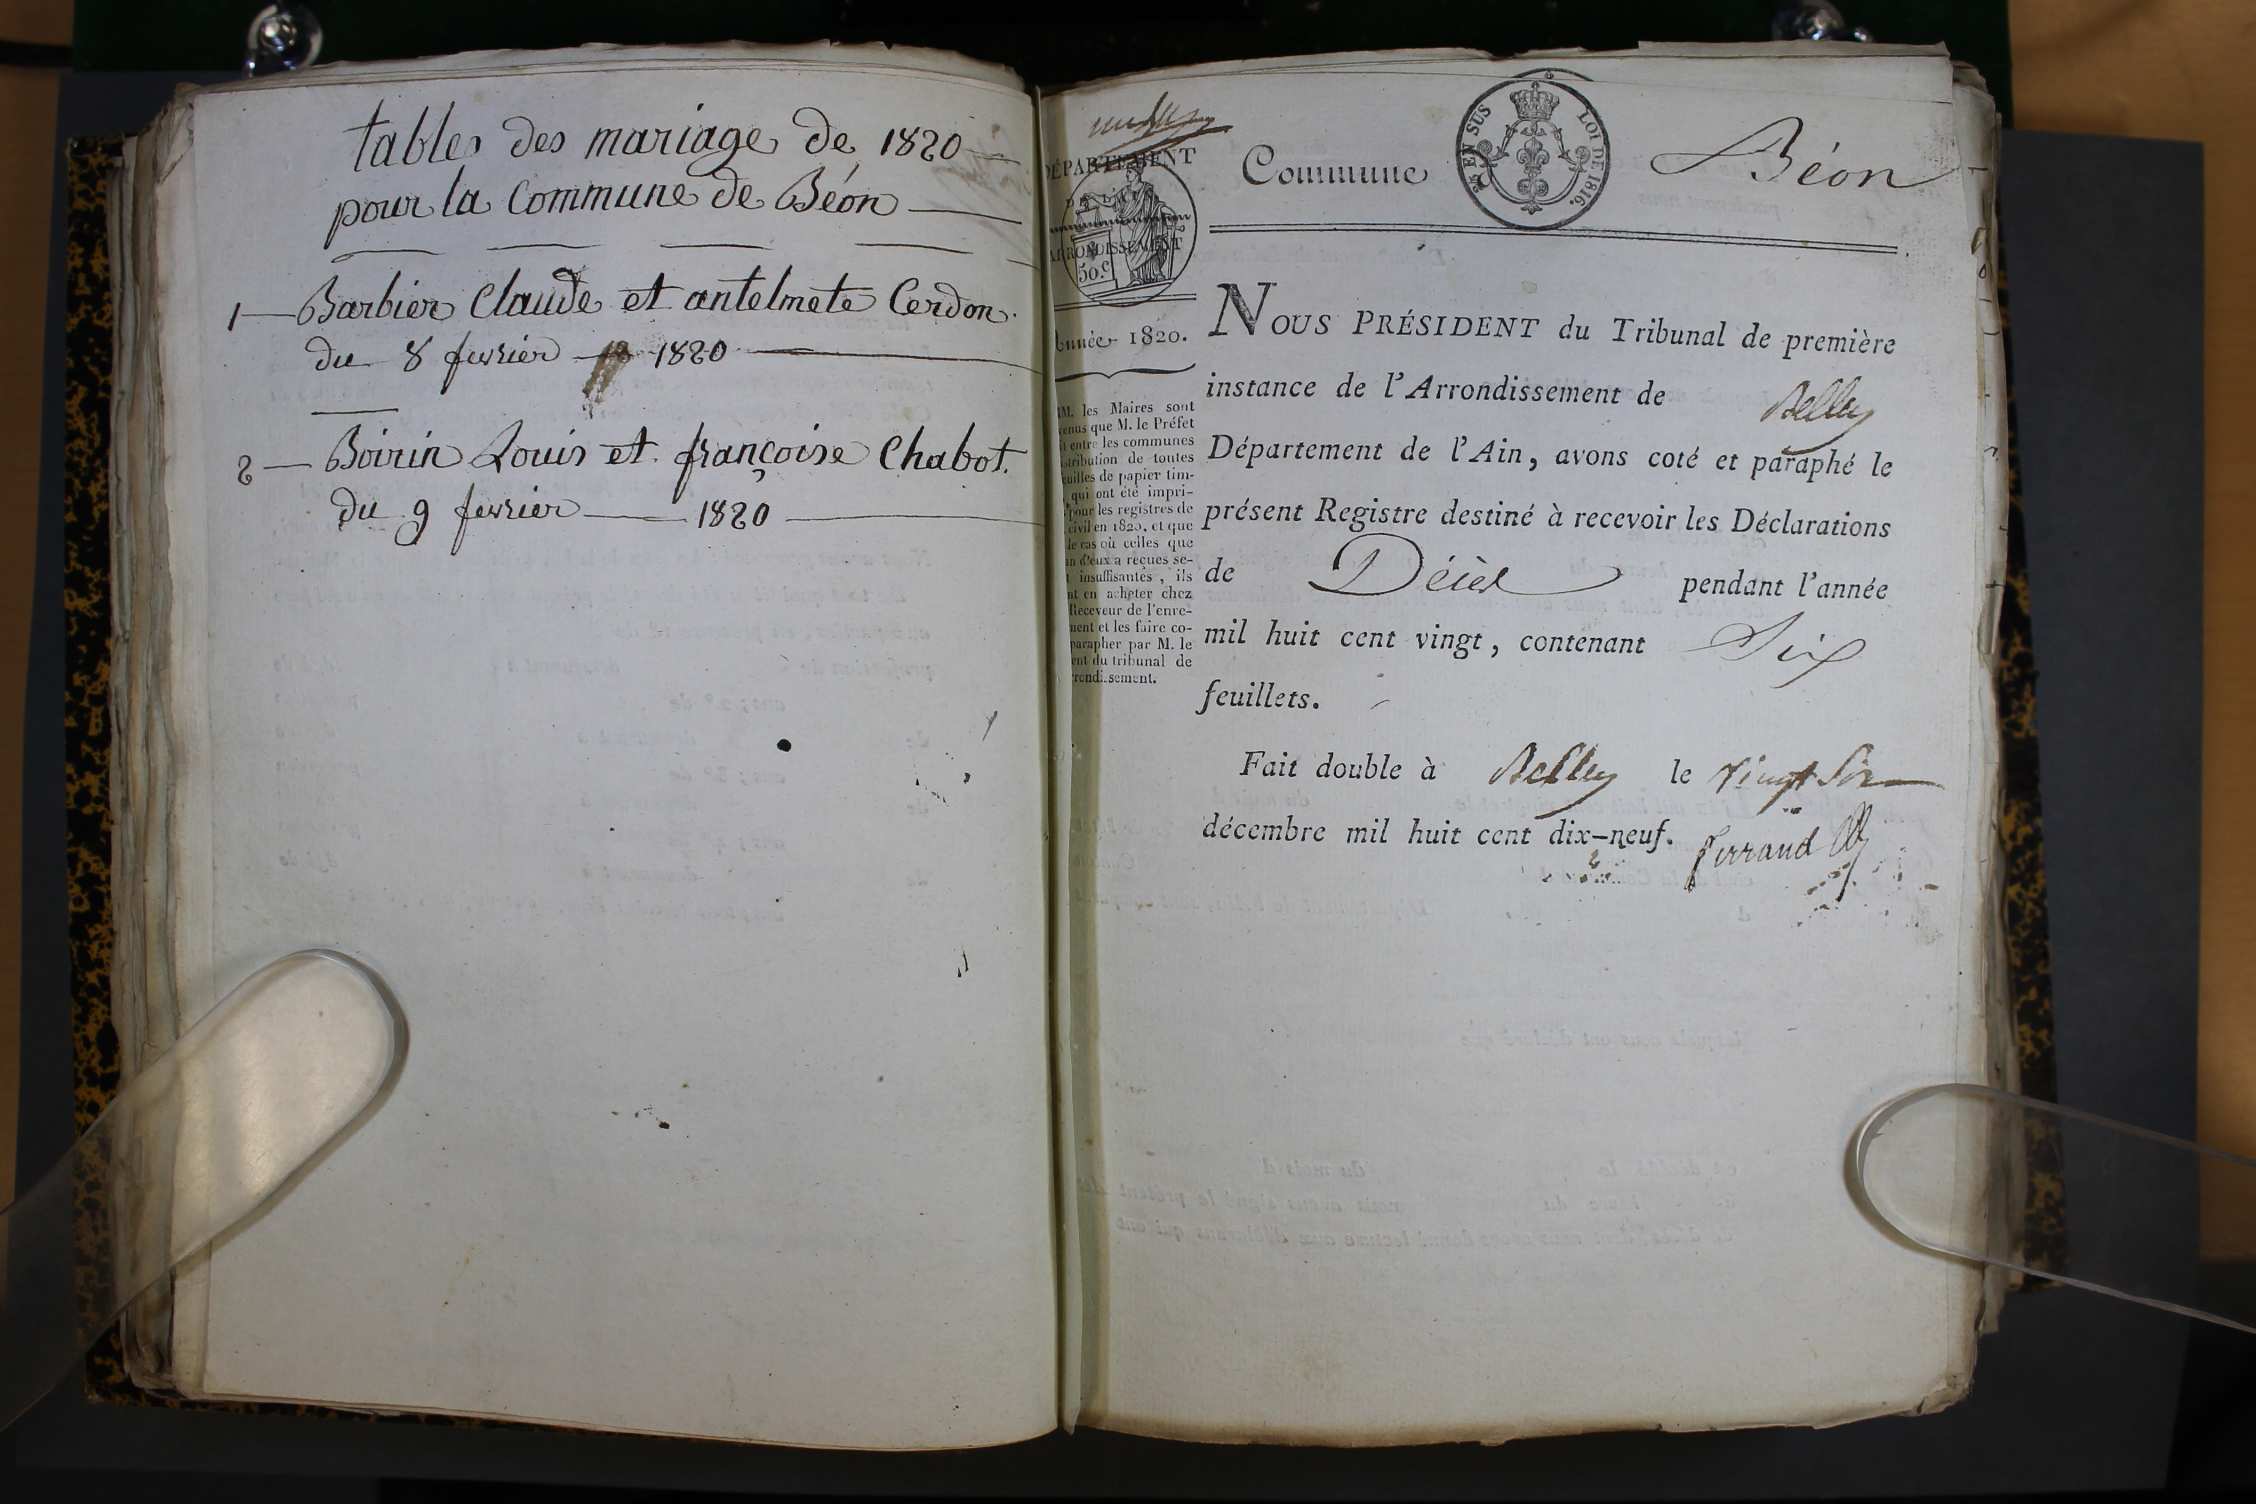 tables des mariage de 1820
pour la Commune de Béon
1 — Barbier Claude et antelmete Cerdon.
du 8 fevrier 1820
2 — Boirin Louis et françoise Chabot.
du 9 fevrier 1820
DÉPARTEMENT
ARRONDISSEMENT
50.c
Année 1820.
MM. les Maires sont
venus que M. le Préfet
entre les communes
stribution de toutes
euilles de papier tim-
qui ont été impri-
pour les registres de
civil en 1820, et que
le cas où celles que
un d'eux a reçues se-
insuffisantes, ils
nt en acheter chez
Receveur de l'enre-
ment et les faire co-
parapher par M. le
ent du tribunal de
rrondissement.
Commune
EN SUS
LOI DE 1816.
Béon
NOUS PRÉSIDENT du Tribunal de première
instance de l'Arrondissement de Belley
Département de l'Ain, avons coté et paraphé le
présent Registre destiné à recevoir les Déclarations
de Décès pendant l'année
mil huit cent vingt, contenant Six
feuillets.
Fait double à Belley le vingt Six
décembre mil huit cent dix-neuf.
Ferrand